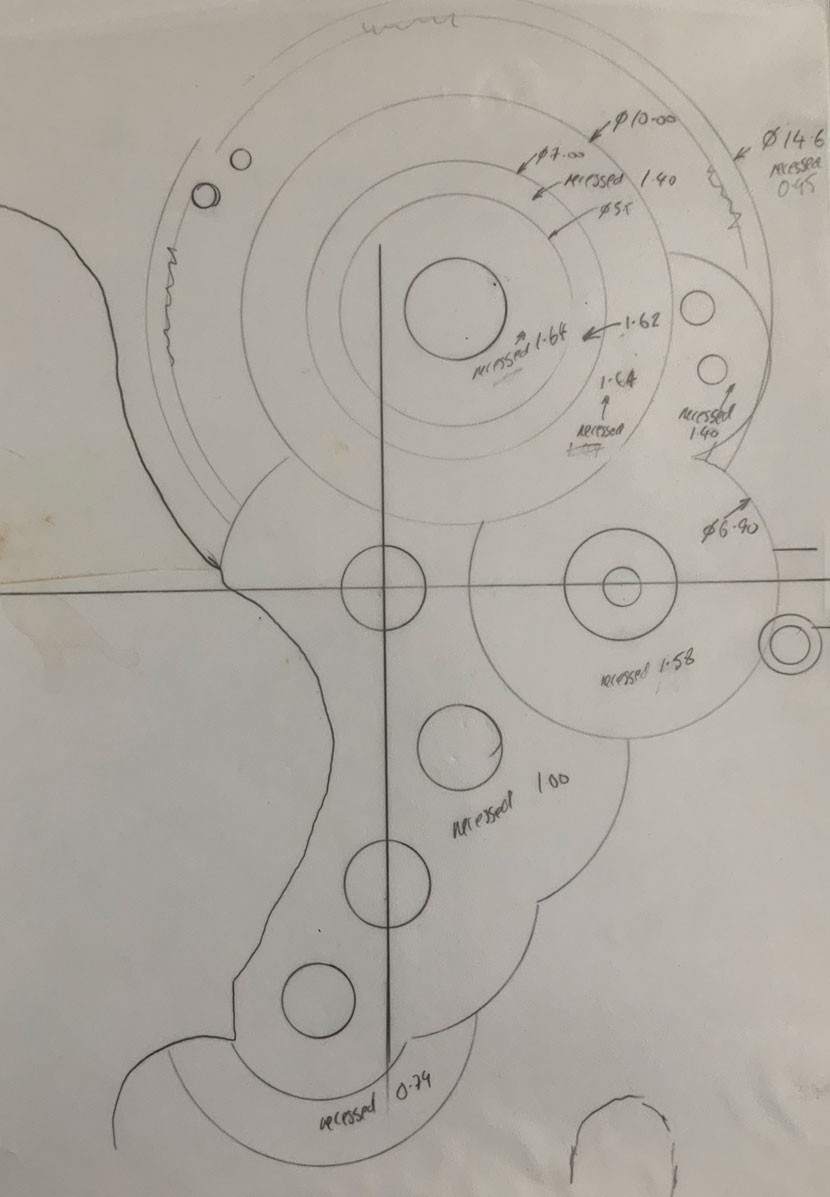 Ø10.00
Ø14.6
recessed
0.45
Ø7.00
recessed 1.40
Ø5.5
1.62
recessed 1.64
1.64
recessed
recessed
1.40
Ø6.90
recessed 1.58
recessed 1.00
recessed 0.74